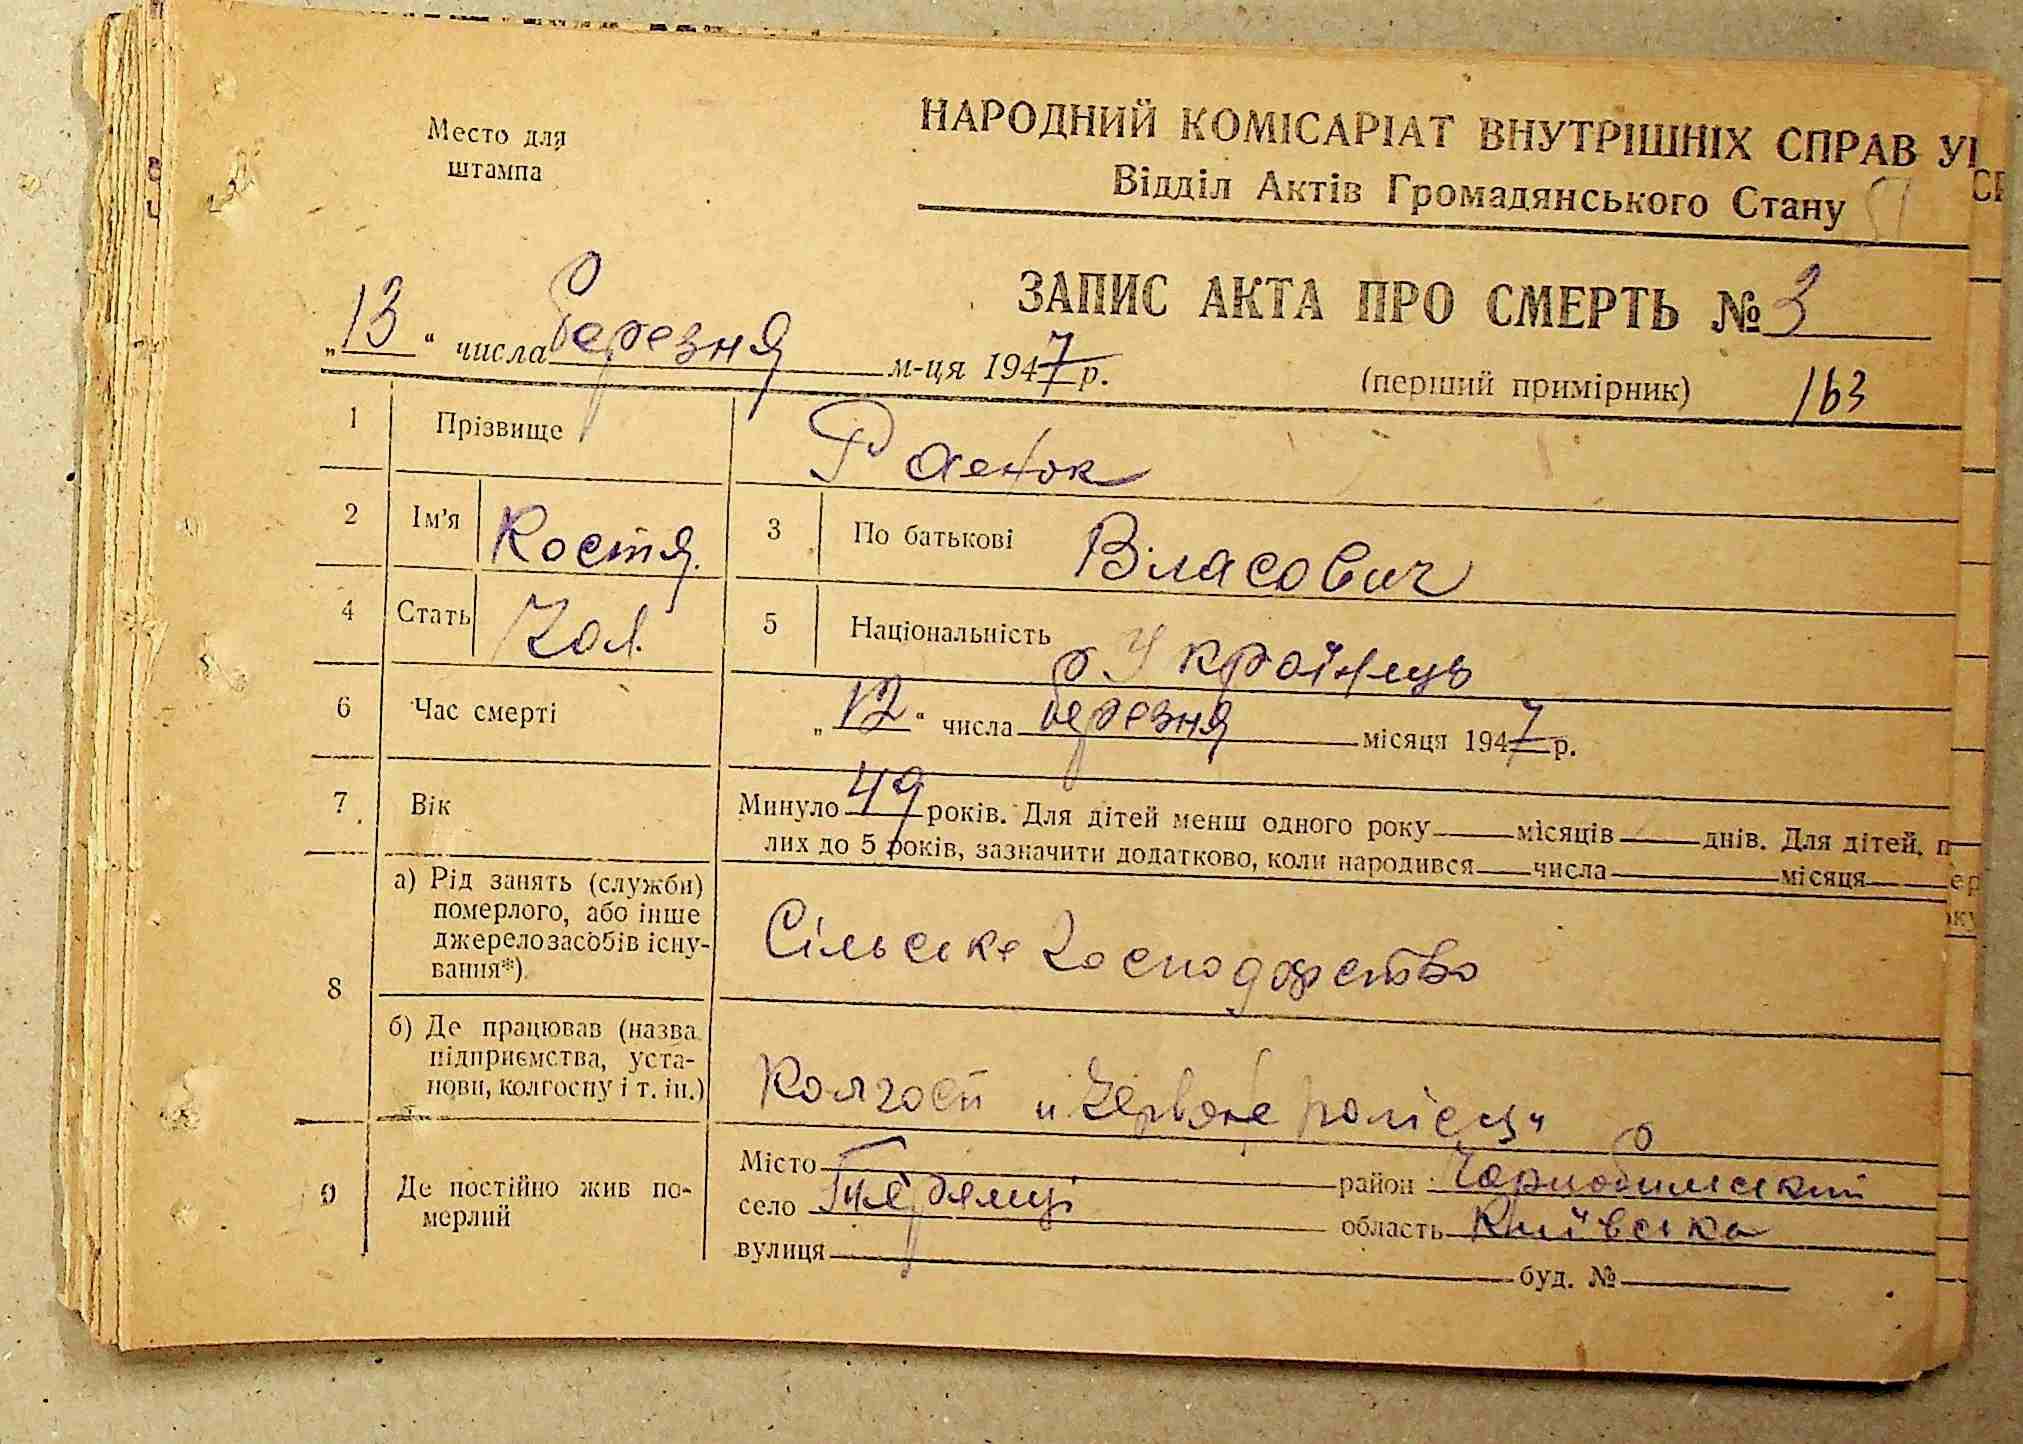 Место для
штампа
НАРОДНИЙ КОМІСАРІАТ ВНУТРІШНІХ СПРАВ У
Відділ Актів Громадянського Стану
ЗАПИС АКТА ПРО СМЕРТЬ № 3
„13“ числа березня м-ця 1947 р.
(перший примірник) 163
1 Прізвище Раенок
2 Ім'я Костя 3 По батькові Власович
4 Стать Чол. 5 Національність Українець
6 Час смерті „12“ числа березня місяця 1947 р.
7 Вік Минуло 49 років. Для дітей менш одного року місяців днів. Для дітей, п
лих до 5 років, зазначити додатково, коли народився числа місяця
8 а) Рід занять (служби)
померлого, або інше
джерело засобів існу-
вання*)
Сільське господарство
б) Де працював (назва
підприємства, уста-
нови, колгоспу і т. ін.)
Колгосп
9 Де постійно жив по-
мерлий
Місто район Чорнобильский
село область Київська
вулиця буд. №